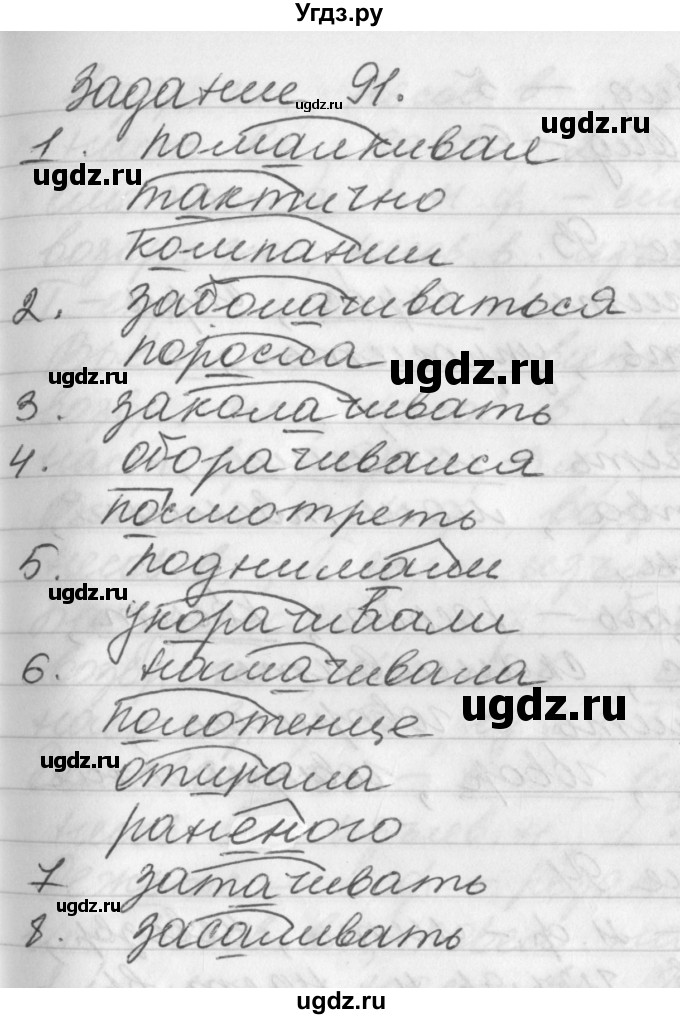 Угдз.ру
Задание 91.
ugdz.ru
ugdz.ru
1. помалкивал
ugdz.ru
тактично
компании
2. заболачиваться
поросла
ugdz.ru
ugdz.ru
3. заколачивать
4. оборачивался
посмотреть
5. поднимали
ugdz.ru
укорачивали
6. намачивала
полотенце
ugdz.ru
ugdz.ru
отирала
раненого
7 затачивать
ugdz.ru
8. засаливать
ugdz.ru